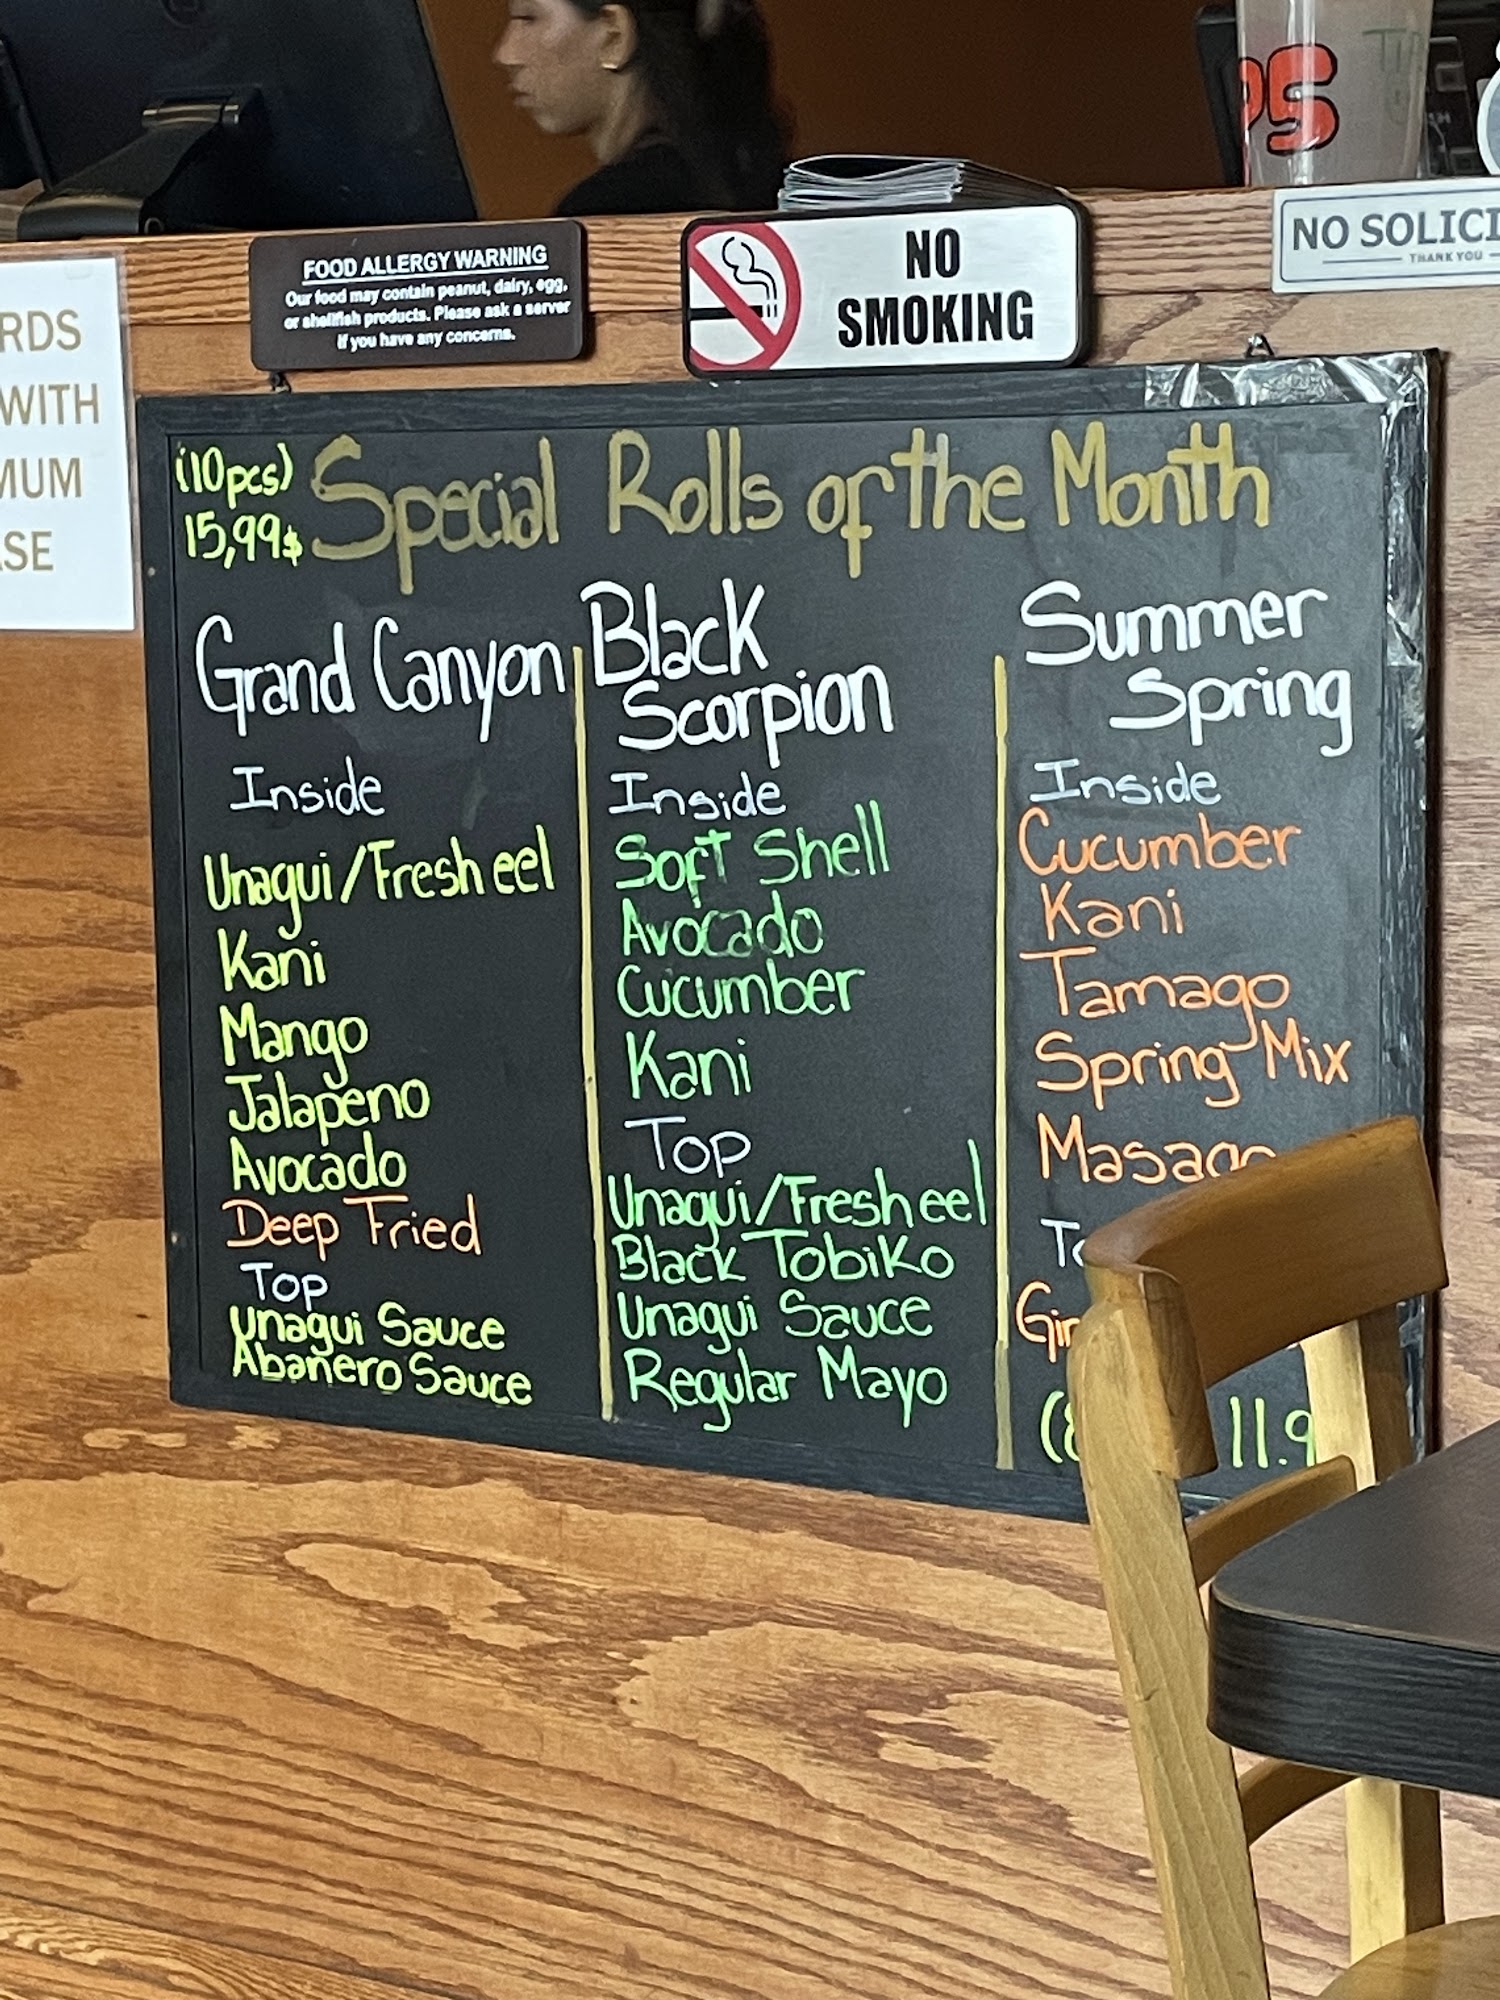 FOOD ALLERGY WARNING
Our food may contain peanut, dairy, egg,
or shellfish products. Please ask a server
if you have any concerns.
NO
SMOKING
NO SOLICI
THANK YOU
RDS
WITH
MUM
ASE
(10pcs)
15,99$
Special Rolls of the Month
Grand Canyon
Inside
Unagui/Fresh eel
Kani
Mango
Jalapeno
Avocado
Deep Fried
Top
Unagui Sauce
Abanero Sauce
Black
Scorpion
Inside
Soft Shell
Avocado
Cucumber
Kani
Top
Unagui/Fresh eel
Black Tobiko
Unagui Sauce
Regular Mayo
Summer
Spring
Inside
Cucumber
Kani
Tamago
Spring Mix
Masago
11.9